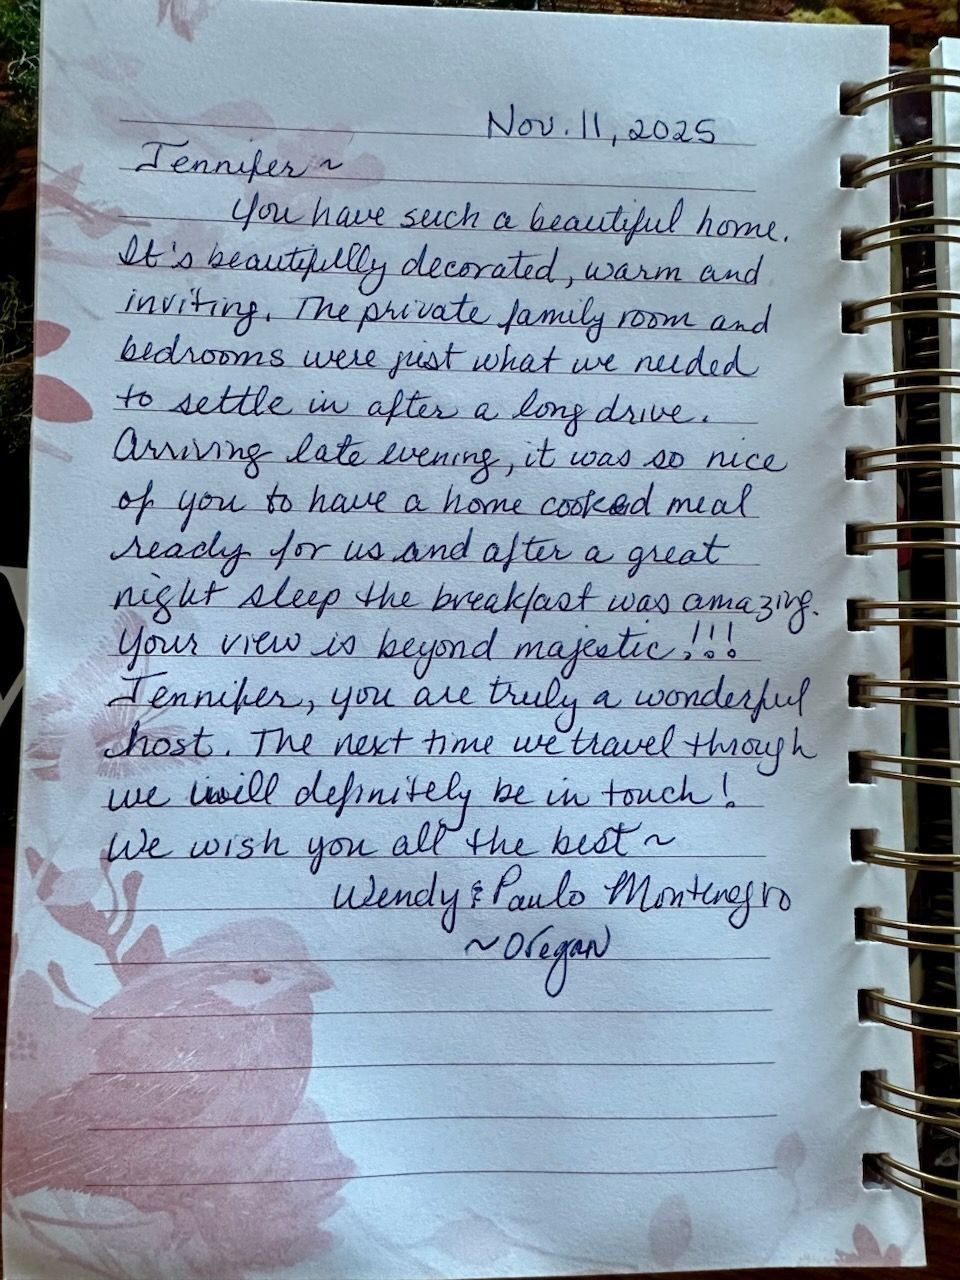 Nov. 11, 2025
Jennifer ~
You have such a beautiful home.
It's beautifully decorated, warm and
inviting. The private family room and
bedrooms were just what we needed
to settle in after a long drive.
Arriving late evening, it was so nice
of you to have a home cooked meal
ready for us and after a great
night sleep the breakfast was amazing.
Your view is beyond majestic!!!
Jennifer, you are truly a wonderful
host. The next time we travel through
we will definitely be in touch!
We wish you all the best ~
Wendy & Paulo Montenegro
~ Oregan